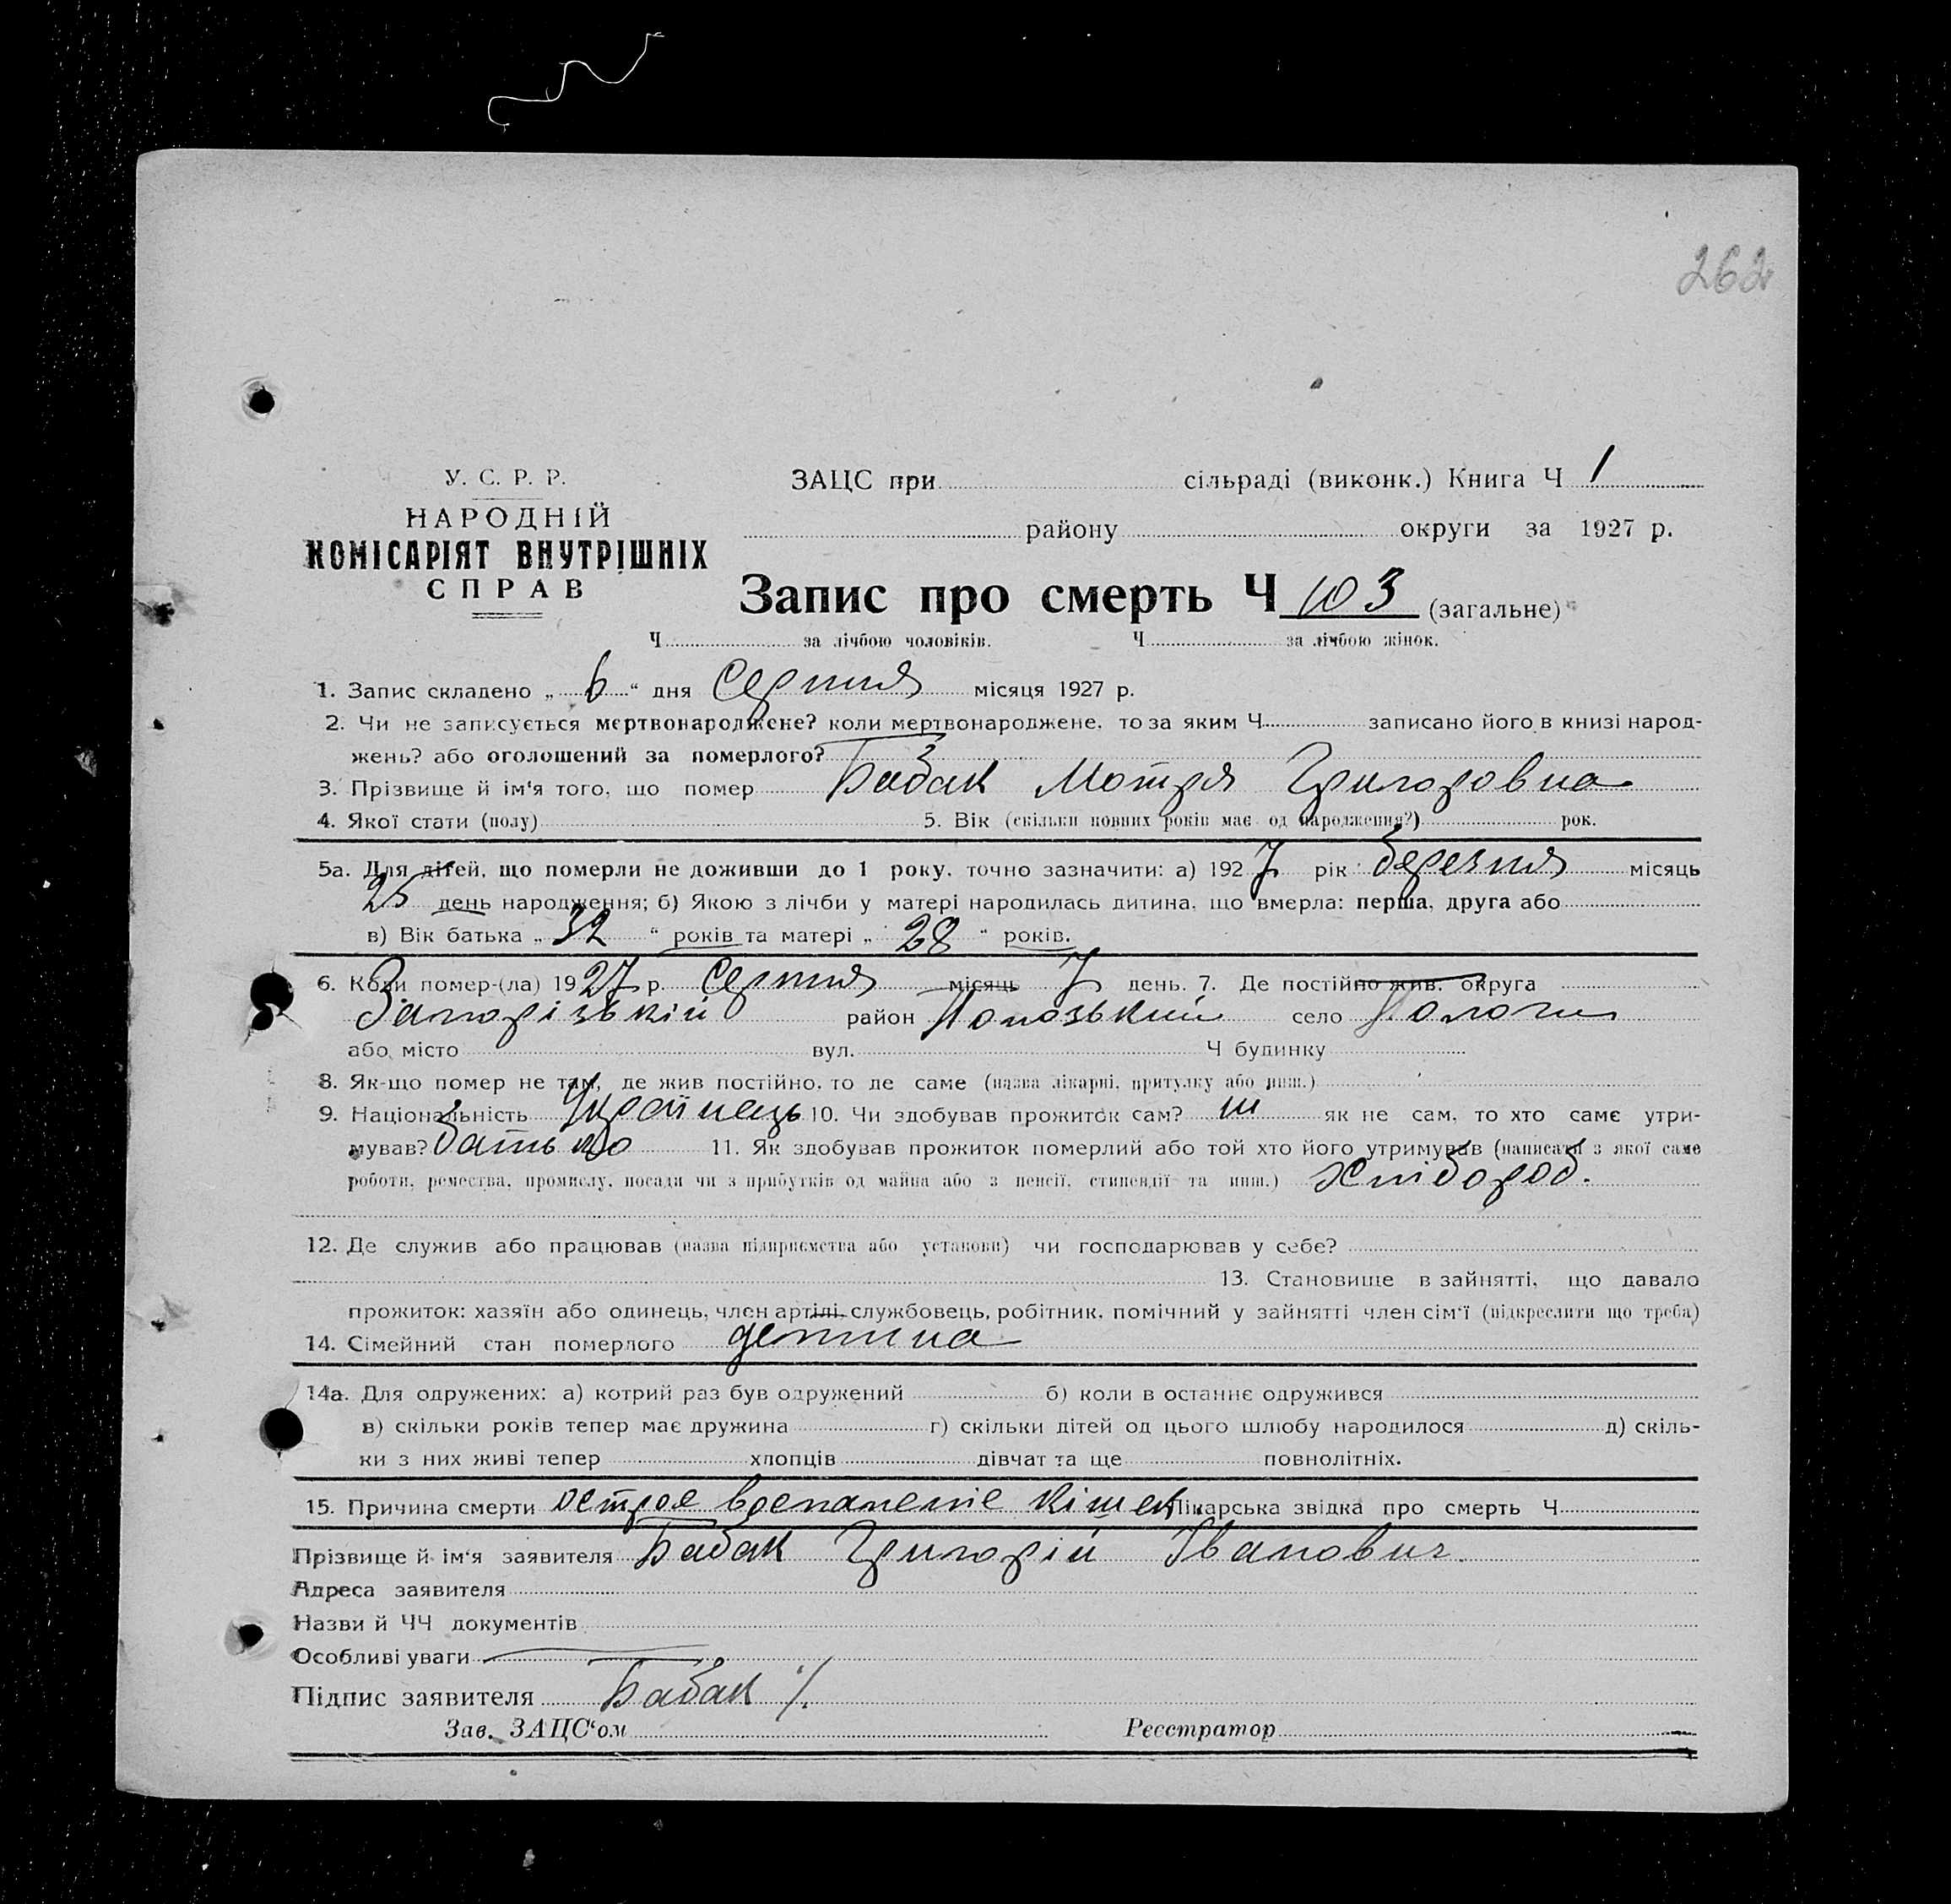 262
У. С. Р. Р.
НАРОДНІЙ
КОМІСАРІЯТ ВНУТРІШНІХ
СПРАВ
ЗАЦС при сільраді (виконк.) Книга Ч 1
району округи за 1927 р.
Запис про смерть Ч 103 (загальне)
Ч за лічбою чоловіків. Ч за лічбою жінок.
1. Запис складено „ 6 “ дня Серпня місяця 1927 р.
2. Чи не записується мертвонароджене? коли мертвонароджене, то за яким Ч записано його в книзі народ-
жень? або оголошений за померлого?
3. Прізвище й ім'я того, що помер Бабак Мотря Григоровна
4. Якої стати (полу) 5. Вік (скільки повних років має од народження?) рок.
5а. Для дітей, що померли не доживши до 1 року, точно зазначити: а) 1927 рік березня місяць
25 день народження; б) Якою з лічби у матері народилась дитина, що вмерла: перша, друга або
в) Вік батька „ 32 “ років та матері „ 28 “ років.
6. Коли помер-(ла) 1927 р. Серпня місяць 7 день. 7. Де постійно жив. округа
Запорізький район Пологзький село Пологи
або місто вул. Ч будинку
8. Як-що помер не там, де жив постійно, то де саме (назва лікарні, притулку або инш.)
9. Національність Українець 10. Чи здобував прожиток сам? ні як не сам, то хто саме утри-
мував? батько 11. Як здобував прожиток померлий або той хто його утримував (написати з якої саме
роботи, ремества, промислу, посади чи з прибутків од майна або з пенсії, стипендії та инш.) Хлібороб.
12. Де служив або працював (назва підприємства або установи) чи господарював у себе?
13. Становище в зайнятті, що давало
прожиток: хазяїн або одинець, член артілі, службовець, робітник, помічний у зайнятті член сім'ї (підкреслити що треба)
14. Сімейний стан померлого детина
14а. Для одружених: а) котрий раз був одружений б) коли в останнє одружився
в) скільки років тепер має дружина г) скільки дітей од цього шлюбу народилося д) скіль-
ки з них живі тепер хлопців дівчат та ще повнолітніх.
15. Причина смерти острое воспаленіе кішек Лікарська звідка про смерть Ч
Прізвище й ім'я заявителя Бабак Григорій Іванович
Адреса заявителя
Назви й ЧЧ документів
Особливі уваги
Підпис заявителя Бабак
Зав. ЗАЦС'ом Реєстратор